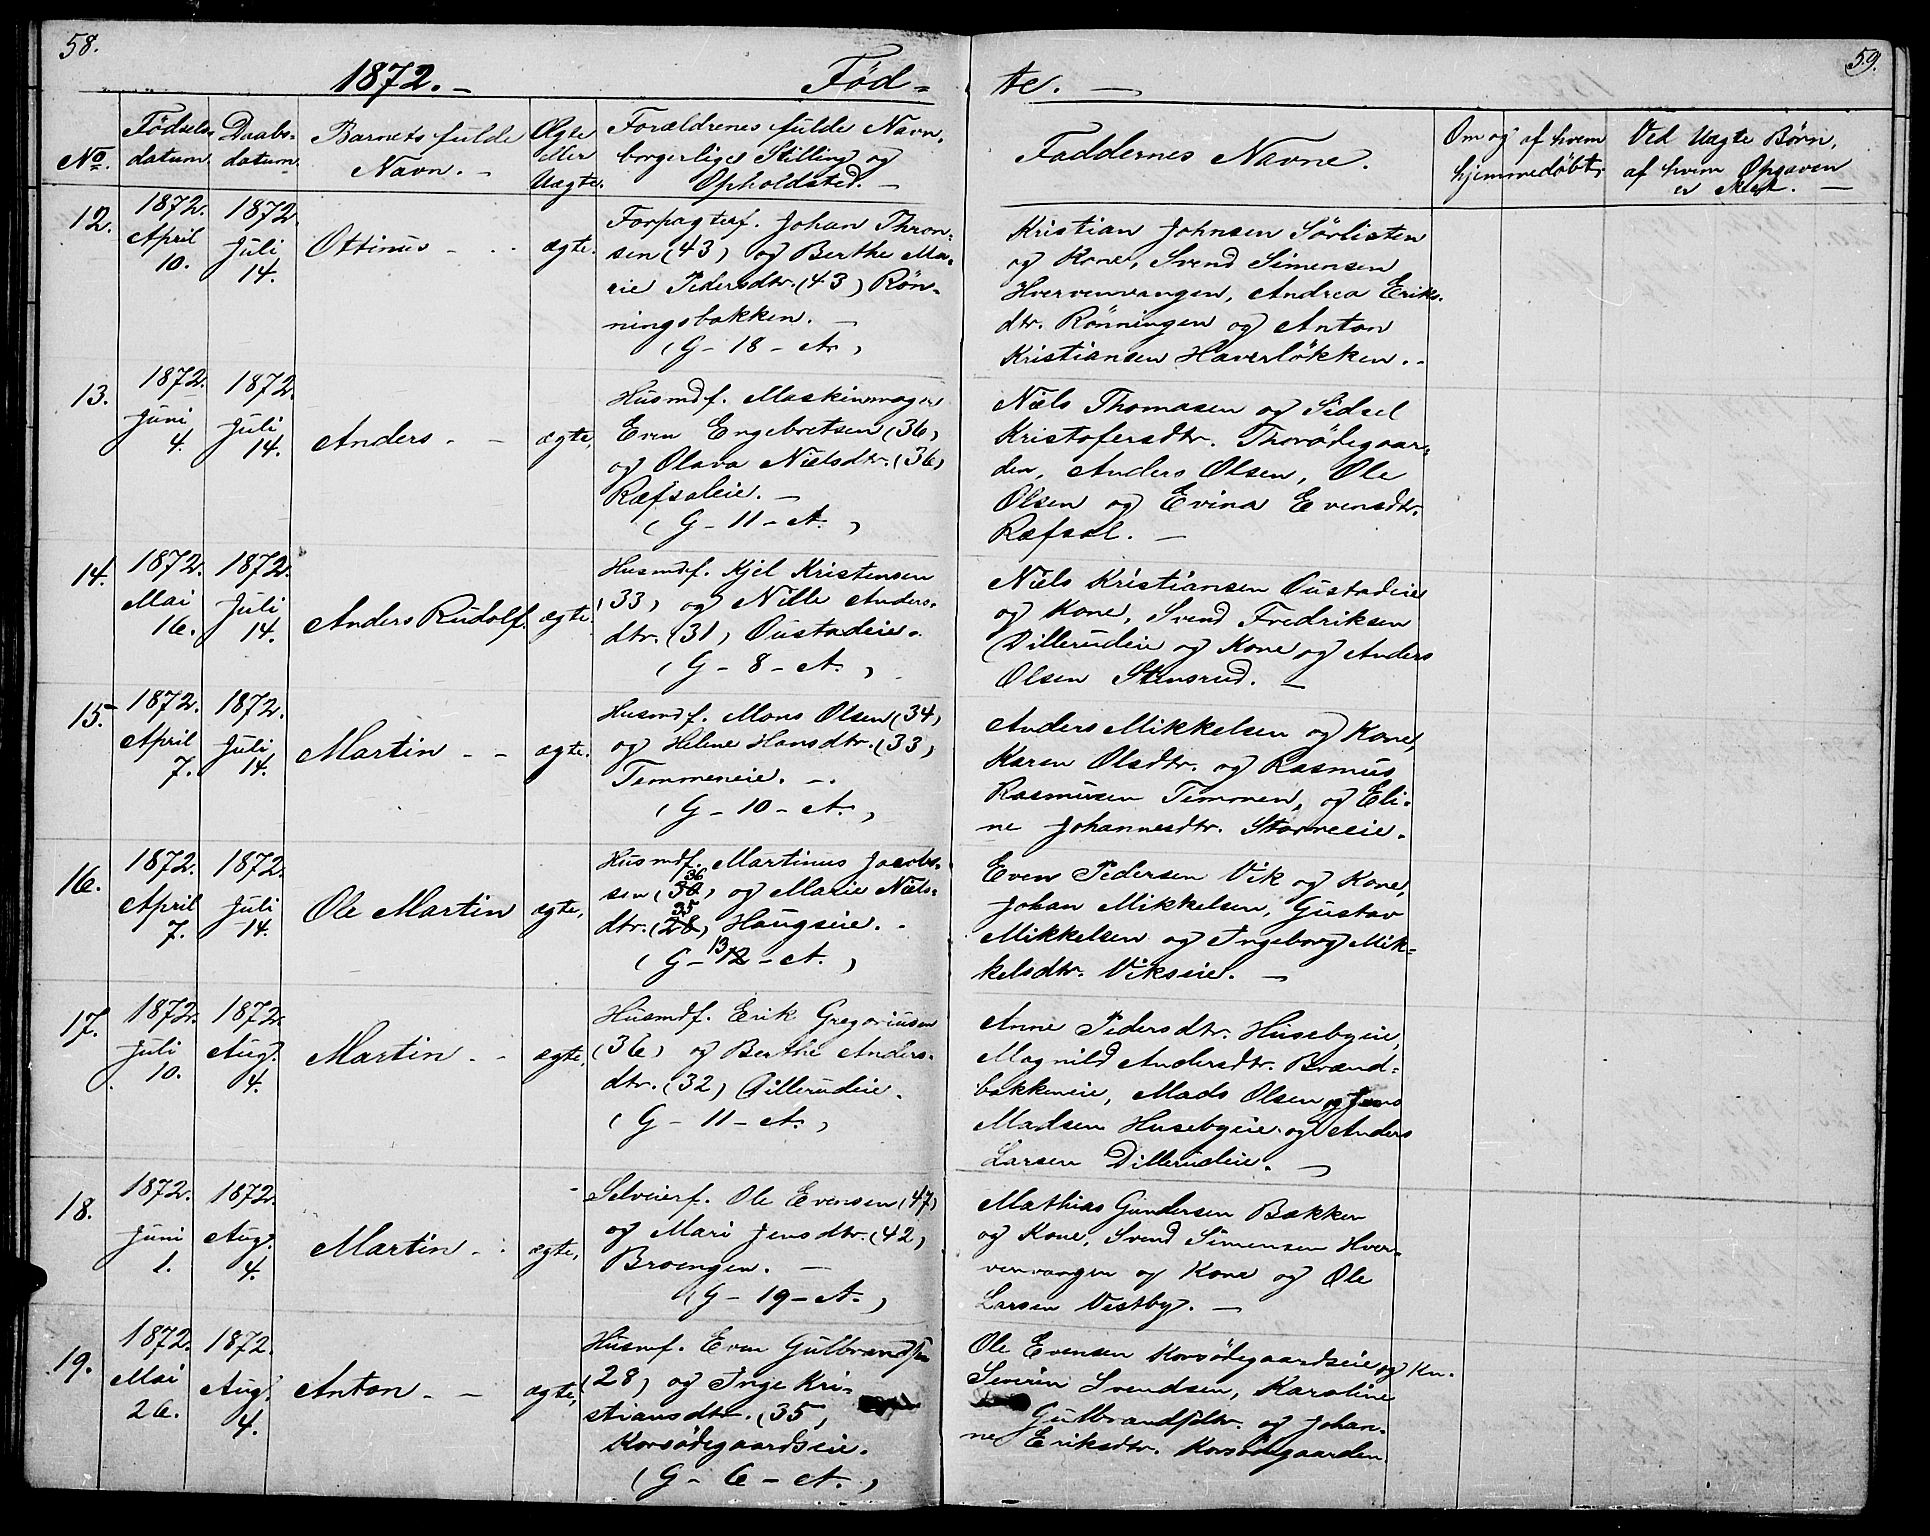 58.
1872. — Fød-
No. Fødsels- datum. Daabs- datum. Barnets fulde Navn. — Ægte eller Uægte. Forældrenes fulde Navn, borgerlige Stilling og Opholdsted. —
12. 1872. April 10. 1872. Juli 14. Ottinus - - ægte.
Forpagterf. Johan Thron-
sen (43) og Berthe Ma-
rie Pedersdtr. (43) Røn-
ningsbakken. —
(G - 18 - A.)
13. 1872. Juni 4. 1872. Juli 14. Anders - - ægte,
Husmdf. Maskinmager
Even Engebretsen (36)
og Olava Nielsdtr. (36)
Ræfsaleie. —
(G - 11 - A.)
14. 1872. Mai 16. 1872. Juli 14. Anders Rudolf. ægte.
Husmdf. Kjel Kristensen
(33) og Nille Anders-
dtr. (31) Oustadeie.
(G - 8 - A.)
15. 1872. April 7. 1872. Juli 14. Martin - - ægte.
Husmdf. Mons Olsen (34)
og Helene Hansdtr. (33)
Timmeneie. —
(G - 10 - A.)
16. 1872. April 7. 1872. Juli 14. Ole Martin ægte,
Husmdf. Martinus Jacob-
sen (36) og Marie Niels-
dtr. (35) Haugseie. -
(G - 13 - A.)
17. 1872. Juli 10. 1872. Aug. 4. Martin - - ægte,
Husmdf. Erik Gregoriusen
(36) og Berthe Anders-
dtr. (32) Dillerudeie.
(G - 11 - A.)
18. 1872. Juni 1. 1872. Aug. 4. Martin - - ægte,
Selveierf. Ole Evensen (47)
og Mari Jensdtr. (42)
Broengen. —
(G - 19 - A.)
19. 1872. Mai 26. 1872. Aug. 4. Anton - - ægte,
Husmf. Even Gulbrandsen
(28) og Inge Kri-
stiansdtr. (35)
Korsødegaardseie.
(G - 6 - A.)
59.
te. —
Faddernes Navne. Om og af hvem hjemmedøbt. Ved Uægte Børn, af hvem Opgaven er skeet. —
Kristian Johnsen Sørlisten
og Kone, Svend Simensen
Hvervenvangen, Andrea Eriks-
dtr. Rønningen og Anton
Kristiansen Haverløkken. -
Niels Thomasen og Sidsel
Kristofersdtr. Thorødegaar-
den, Anders Olsen, Ole
Olsen og Evina Evensdtr.
Ræfsal. —
Niels Kristiansen Oustadeie
og Kone, Svend Fredriksen
Dillerudeie og Kone og Anders
Olsen Stensrud. —
Anders Mikkelsen og Kone,
Karen Olsdtr. og Rasmus
Rasmusen Timmen, og Eli-
ne Johannesdtr. Storreeie.
Even Pedersen Vik og Kone,
Johan Mikkelsen, Gustav
Mikkelsen og Ingeborg Mik-
kelsdtr. Vikseie. —
Anne Pedersdtr. Husebyeie,
Magnild Andersdtr. Brænd-
bakkeneie, Mads Olsen og Jens
Madsen Husebyeie og Anders
Larsen Dillerudeie. —
Mathias Gundersen Bakken
og Kone, Svend Simensen Hver-
venvangen og Kone og Ole
Larsen Vestby. —
Ole Evensen Korsødegaardseie og Kn.
Severin Svendsen, Karoline
Gulbrandsdtr. og Johan-
ne Eriksdtr. Korsødegaarden